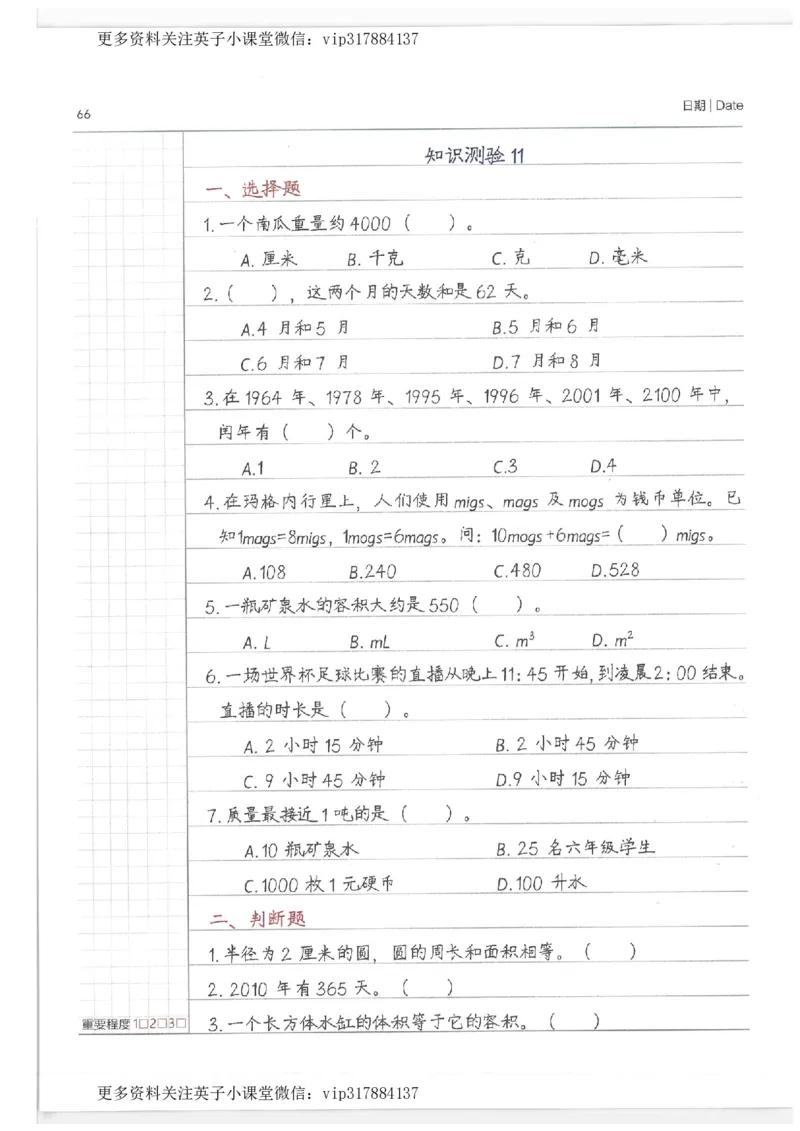 更多资料关注英子小课堂微信：vip317884137
66
日期 | Date
知识测验 11
一、选择题
1.一个南瓜重量约4000（　　）。
A. 厘米　B. 千克　C. 克　D. 毫米
2.（　　），这两个月的天数和是62 天。
A.4 月和5 月　B.5 月和6 月
C.6 月和7 月　D.7 月和8 月
3.在1964 年、1978 年、1995 年、1996 年、2001 年、2100 年中，
闰年有（　　）个。
A.1　B. 2　C.3　D.4
4.在玛格内行星上，人们使用migs、mags 及mogs 为钱币单位。已
知1mags=8migs，1mogs=6mags。问：10mogs+6mags=（　　）migs。
A.108　B.240　C.480　D.528
5.一瓶矿泉水的容积大约是550（　　）。
A. L　B. mL　C. m³　D. m²
6.一场世界杯足球比赛的直播从晚上11：45开始，到凌晨2：00结束。
直播的时长是（　　）。
A. 2 小时15 分钟　B. 2 小时45 分钟
C. 9 小时45 分钟　D.9 小时15 分钟
7.质量最接近1吨的是（　　）。
A.10 瓶矿泉水　B. 25 名六年级学生
C.1000 枚1元硬币　D.100 升水
二、判断题
1.半径为2 厘米的圆，圆的周长和面积相等。（　　）
2. 2010 年有365天。（　　）
3.一个长方体水缸的体积等于它的容积。（　　）
重要程度 1□2□3□
更多资料关注英子小课堂微信：vip317884137